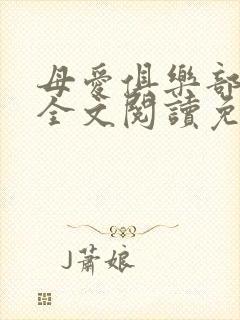 母愛俱樂部
全文閱讀免
J蕭娘